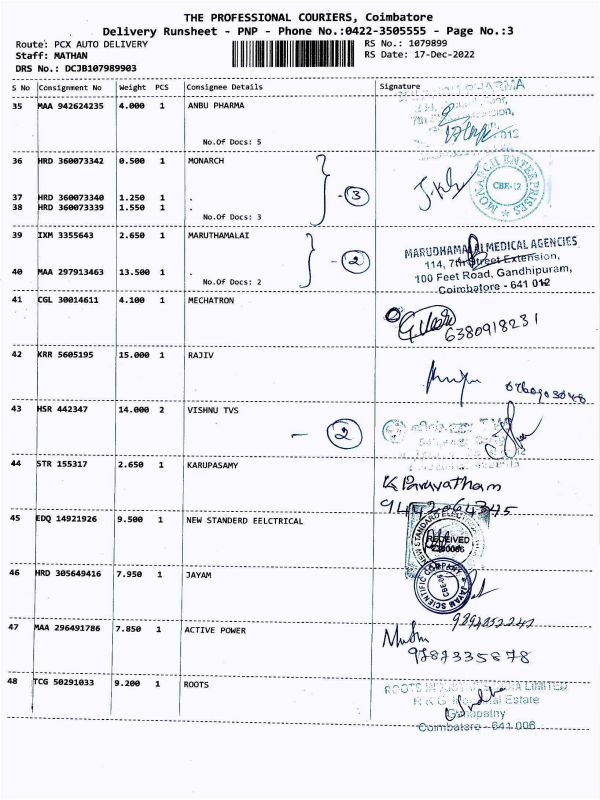 THE PROFESSIONAL COURIERS, Coimbatore
Delivery Runsheet - PNP - Phone No.:0422-3505555 - Page No.:3
Route: PCX AUTO DELIVERY RS No.: 1079899
Staff: MATHAN RS Date: 17-Dec-2022
DRS No.: DCJB107989903
S No Consignment No Weight PCS Consignee Details Signature
35 MAA 942624235 4.000 1 ANBU PHARMA
No.Of Docs: 5
36 HRD 360073342 0.500 1 MONARCH
MONARCH ENTERPRISES CBE-12
37 HRD 360073340 1.250 1 . 3
38 HRD 360073339 1.550 1 .
No.Of Docs: 3
39 IXM 3355643 2.650 1 MARUTHAMALAI
MARUDHAMALAI MEDICAL AGENCIES
114, 7th Street Extension,
2
40 MAA 297913463 13.500 1 . 100 Feet Road, Gandhipuram,
No.Of Docs: 2 Coimbatore - 641 012
41 CGL 30014611 4.100 1 MECHATRON
6380918231
42 KRR 5605195 15.000 1 RAJIV
43 HSR 442347 14.000 2 VISHNU TVS
2
44 STR 155317 2.650 1 KARUPASAMY
K Parvatham
9442064345
45 EDQ 14921926 9.500 1 NEW STANDERD EELCTRICAL
NEW STANDARD
RECEIVED
46 HRD 305649416 7.950 1 JAYAM
JAYAM SCIENTIFIC COMPANY
47 MAA 296491786 7.850 1 ACTIVE POWER
9787335878
48 TCG 50291033 9.200 1 ROOTS
ROOTS LIMITED
Estate
Ganapathy
Coimbatore - 641 006